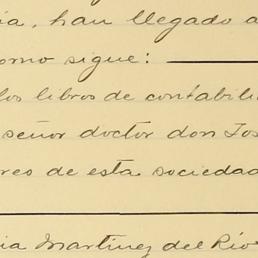 ia, han llegado a
omo sigue:
los libros de contabili
señor doctor don Jos
res de esta sociedad
ia Martinez del Río